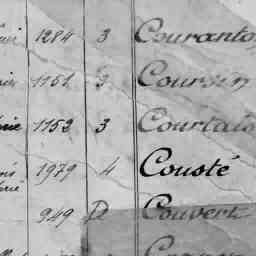 1284 3 Couranto
1151 3 Coursin
1153 3 Courtais
1979 4 Cousté
949 D Couvert